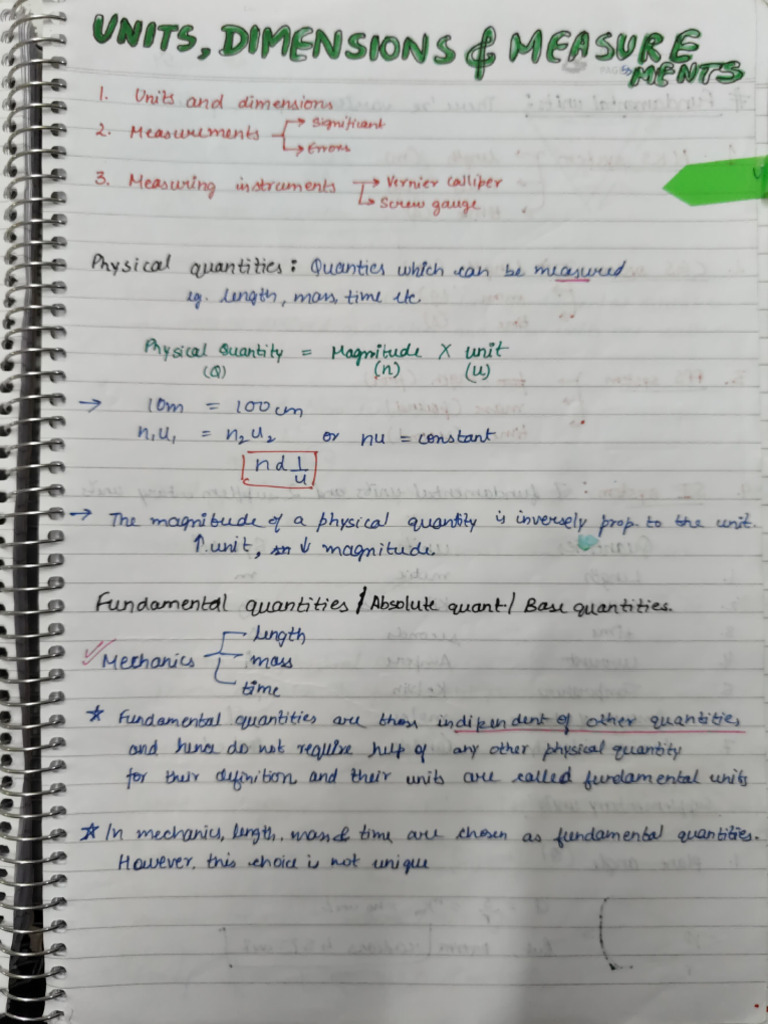 UNITS, DIMENSIONS & MEASURE
MENTS
1. Units and dimensions
2. Measurements → Significant
→ Errors
3. Measuring instruments → Vernier calliper
→ Screw gauge
Physical quantities : Quanties which can be measured
eg. length, mass, time etc.
Physical Quantity = Magnitude X unit
(Q) (n) (u)
→ 10m = 100cm
n₁u₁ = n₂u₂ or nu = constant
n α 1/u
→ The magnitude of a physical quantity is inversely prop. to the unit.
↑ unit, ↓ magnitude.
Fundamental quantities / Absolute quant / Base quantities.
✓ Mechanics length
mass
time
* Fundamental quantities are those indipendent of other quantities
and hence do not require help of any other physical quantity
for their definition and their units are called fundamental units
* In mechanics, length, mass & time are chosen as fundamental quantities.
However, this choice is not unique